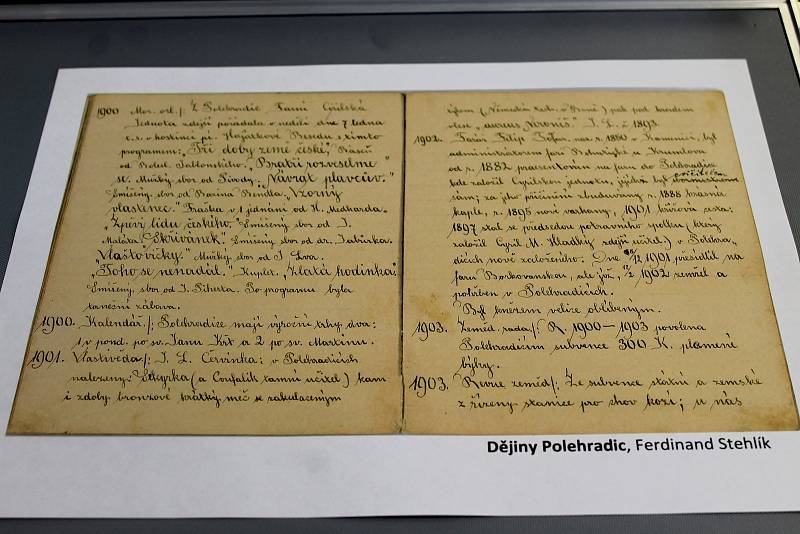 1900 Mor. orl./: Z Polehradic Farní Cyrilská
Jednota zdejší pořádala v neděli dne 7 ledna
t. r. v hostinci pí. Hojátkové Besedu s tímto
programem: „Tři doby země české," Báseň
od Boleš. Jablonského. „Bratři rozveselme
se. Mužský sbor od Tovody. „Návrat plavcův."
Smíšený sbor od Bendla. „Vzorný
vlastenec." Fraška v 1 jednání od H. Medharda.
„Zpěv lidu českého." Smíšený sbor od J.
Maláta. „Skřivánek." Smíšený sbor od
„Vlaštovičky." Mužský sbor od
„Toho se nenadál." Kuplet. „Zlatá hodinka."
Smíšený sbor od Po programu byla
taneční zábava.
1900. Kalendář./: Polehradice mají výroční trhy dva:
1 v pond. po sv. Janu Křt. a 2 po sv. Martinu.
1901. Vlastivěda/: I. L. Červinka: v Polehradicích
nalezeny: (a Coufalík tamní učitel) kam
i zdoby bronzové krátký meč se zakulaceným
(Německá tech. v Brně) pak pod hradem
„aureus Neronis". I. L. Č 1893.
1902. Farář Filip nar. r. 1850 v Kamenici, byl
administrátorem far u Krumlova
od r. 1882 praesentován na faru do Polehradic
kde založil Cyrilskou jednotu, jejímž byl
sám; za jeho přičinění zbudovány r. 1888 krásná
kaple, r. 1895 nové varhany, 1901 křížová cesta:
1897 stal se předsedou potravního spolku, který
založil Cyril M. Hladký zdejší učitel) v Polehra-
dicích nově založeného. Dne 12 1901 přesídlil na
faru Borkovanskou, ale již 1902 zemřel a
pohřben v Polehradicích
Byl knězem velice oblíbeným.
1903. Zeměd. rada/: R. 1900–1903 povolena
Polehradicím subvence 360 K. plemení
býky.
1903. Revue zeměd/: Ze subvence státní a zemské
z řízeny stanice pro chov kozí; u nás
Dějiny Polehradic, Ferdinand Stehlík